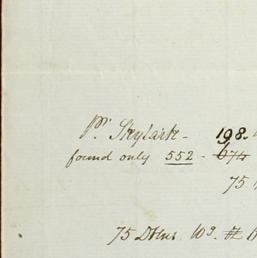 Pr. Skylark - 198.
found only 552 - 674
75
75 Dthrs. 10 3.